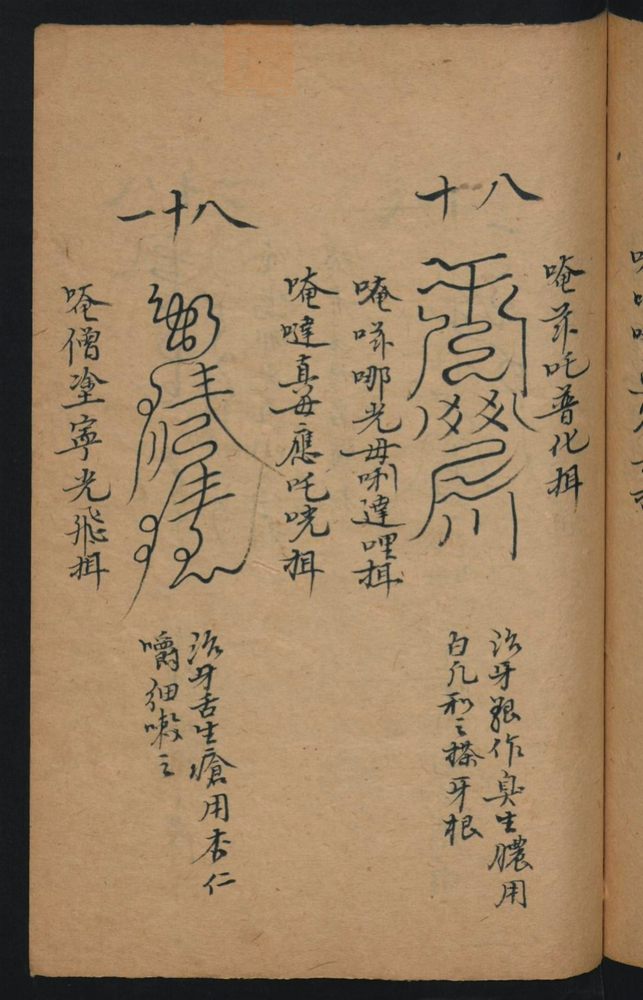 八十
唵䒕吒普化揖
唵㖿哪光毋唎達哩揖
治牙齦作臭生膿用
白凡和之搽牙根
八十一
唵噠真毋應吒唬揖
唵僧塗寧光飛揖
治牙舌生瘡用杏仁
嚼細嗽之